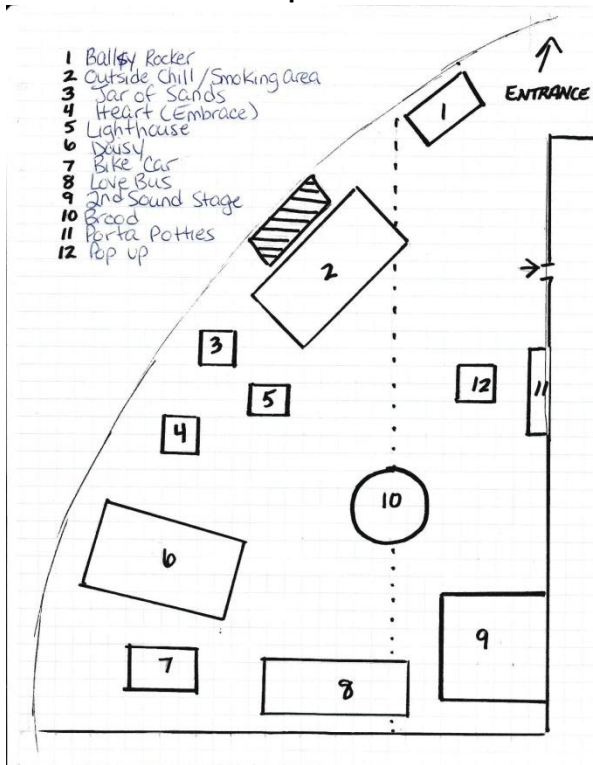 1 Ballsy Rocker
2 Outside Chill/Smoking area
3 Jar of Sands
4 Heart (Embrace)
5 Lighthouse
6 Daisy
7 Bike Car
8 Love Bus
9 2nd Sound Stage
10 Brood
11 Porta Potties
12 Pop up
ENTRANCE
1
2
3
5
4
12
11
10
6
9
7
8